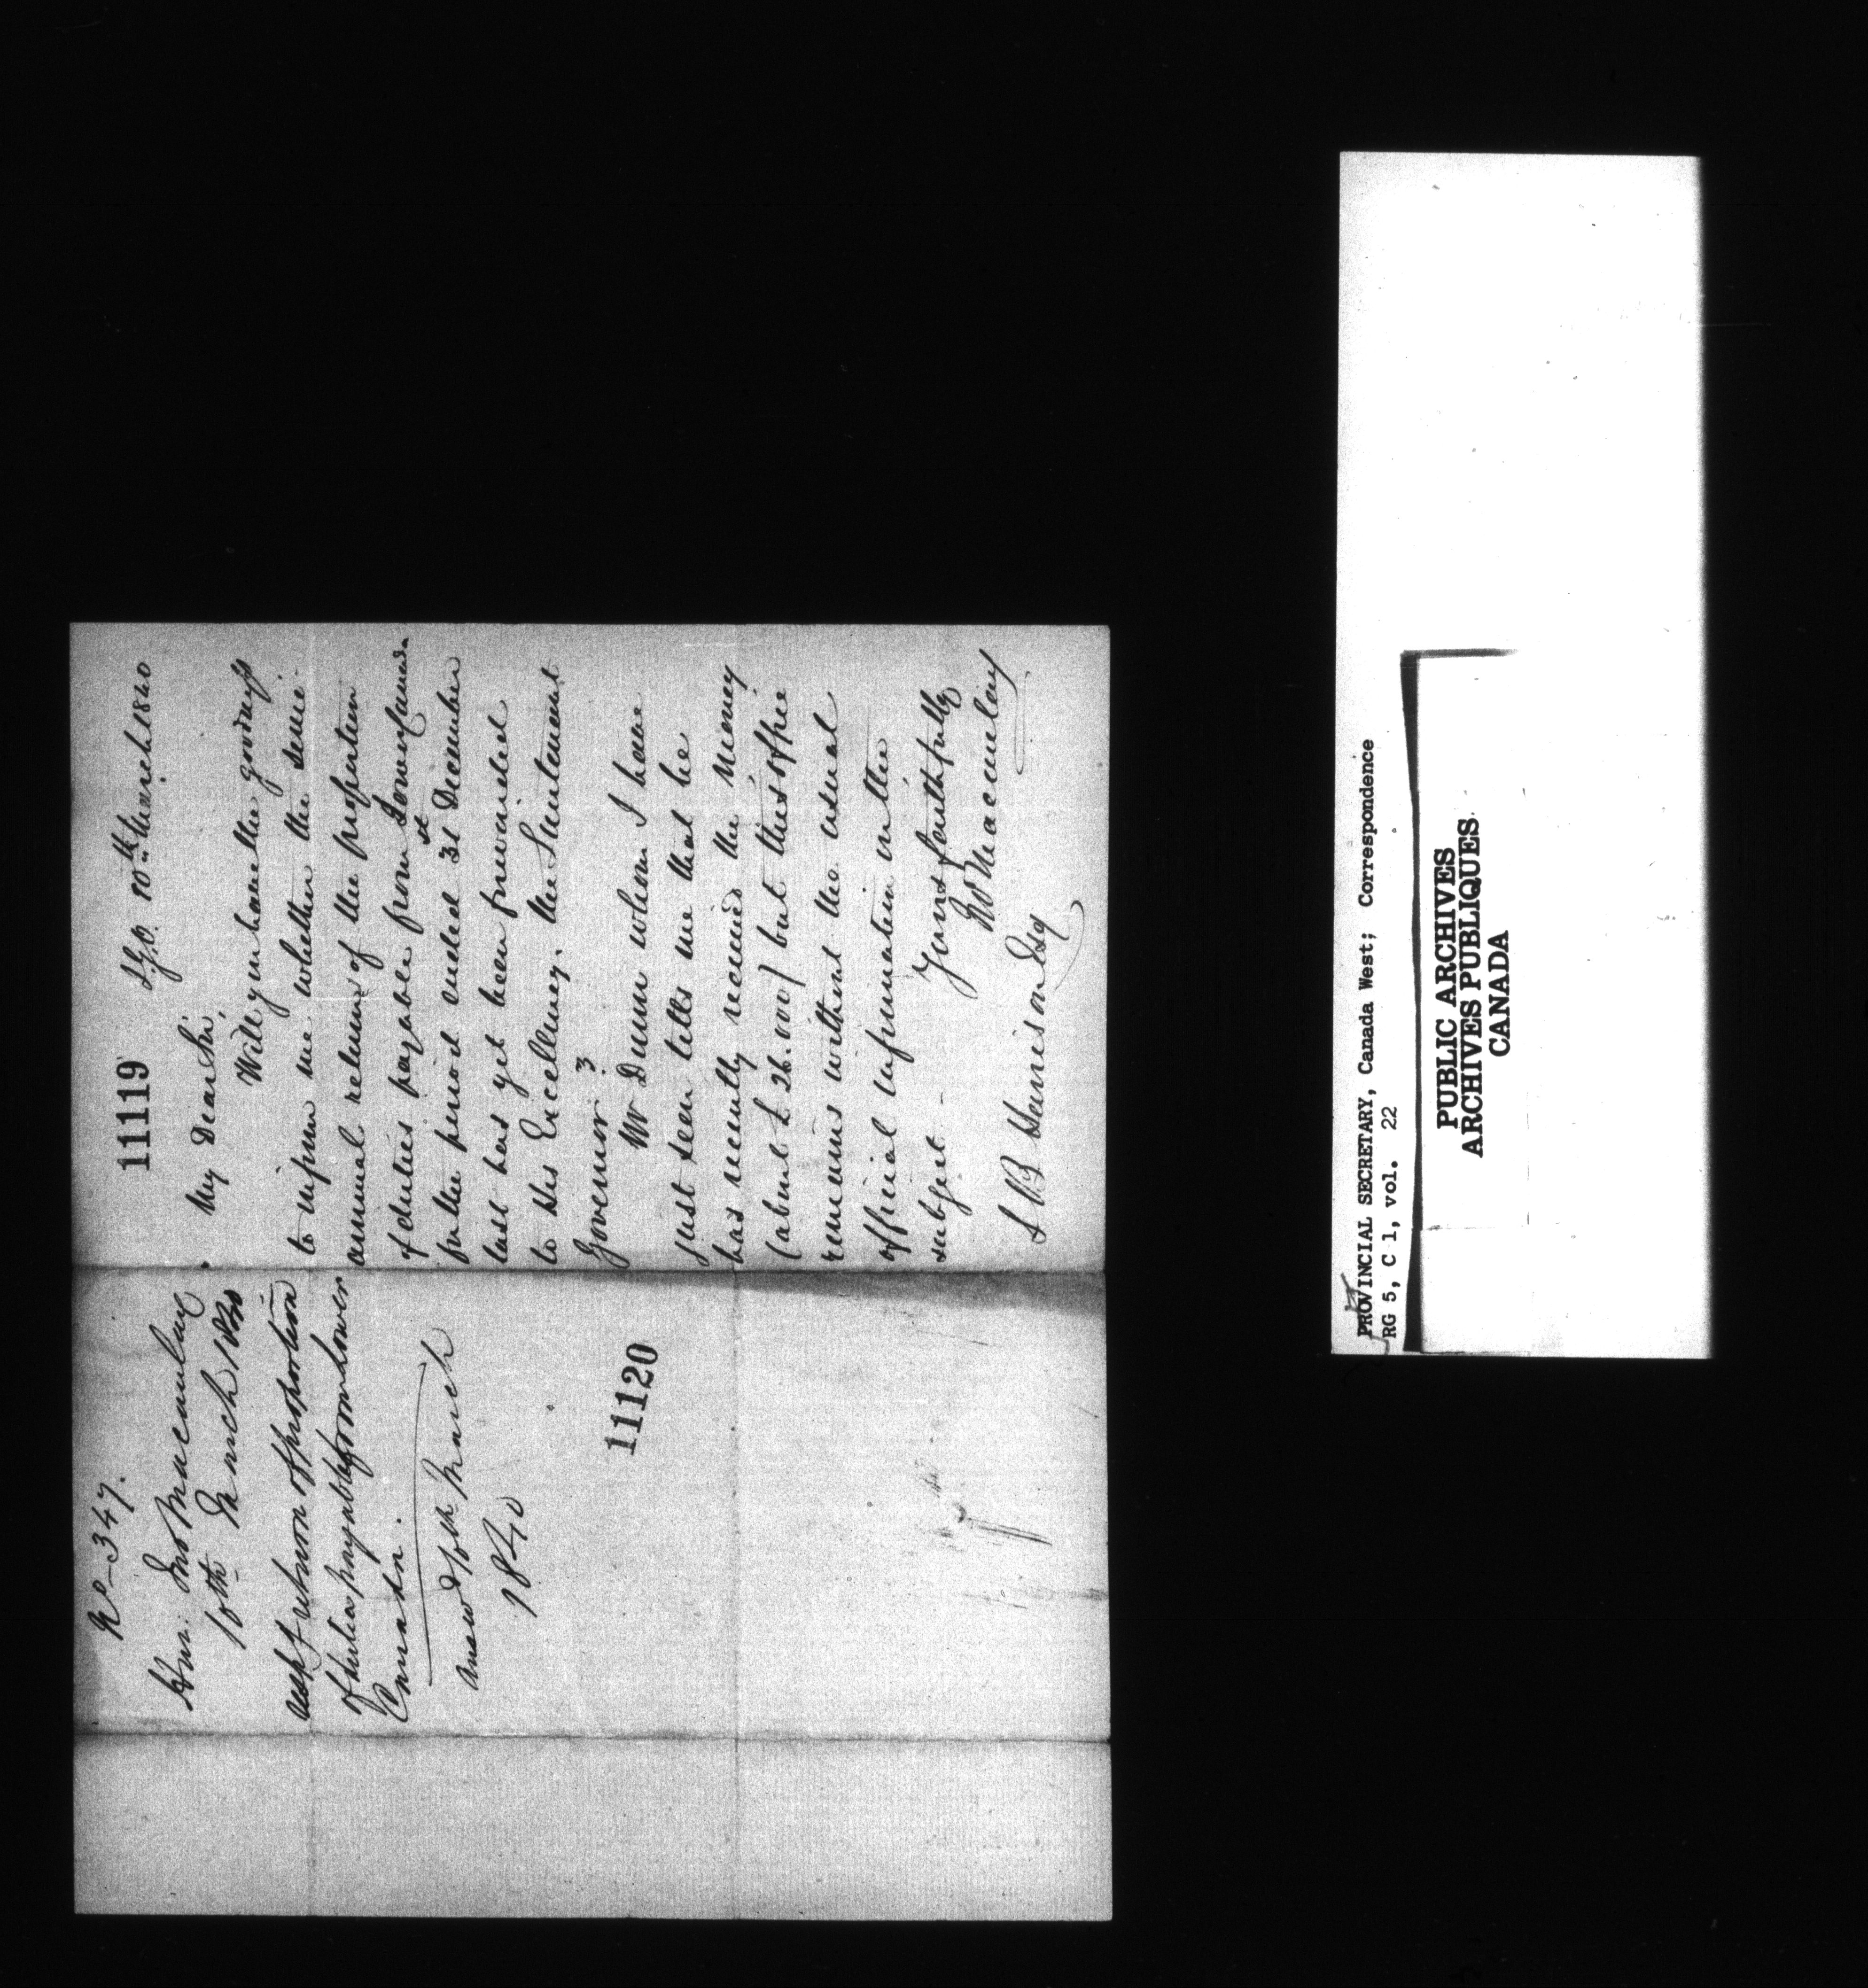 11119
I.G.O. 10th March 1840
My Dear Sir,
Will you have the goodness
to inform me whether the semi-
annual return of the proportion
of duties payable from Lower Canada
for the period ended 31st December
last has yet been furnished
to His Excellency, the Lieutenant
Governor?
Mr Dunn whom I have
just seen tells me that he
has recently received the money
(about £26.000) but this office
remains without the usual
official information on the
subject -
Yours faithfully
Macaulay
S B Harrison Esq
No 347.
Hon: Jno Macaulay
10th March 1840
Resp. return of proportion
of duties payable from Lower
Canada.
Answd 10th March
1840
11120
PROVINCIAL SECRETARY, Canada West; Correspondence
RG 5, C 1, vol. 22
PUBLIC ARCHIVES
ARCHIVES PUBLIQUES
CANADA